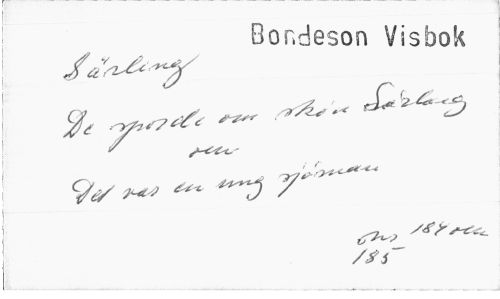 Bondeson Visbok
Särling
De sporde om skön Särlaeg
om
Det var en ung sjöman
184 om
185